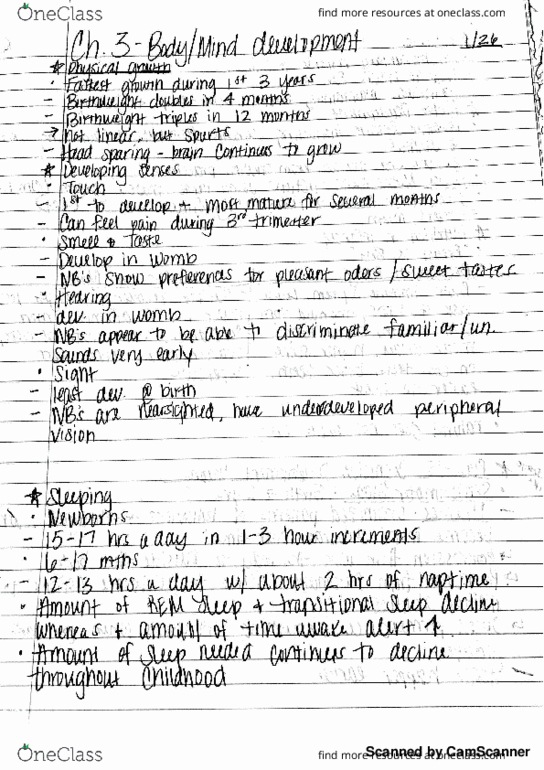 OneClass
find more resources at oneclass.com
Ch. 3 - Body/Mind development 1/26
* Physical growth
· Fastest growth during 1st 3 years
- Birthweight doubles in 4 months
- Birthweight triples in 12 months
→ not linear, but spurts
- Head sparing - brain continues to grow
* Developing senses
· Touch
- 1st to develop + most mature for several months
- Can feel pain during 3rd trimester
· Smell & Taste
- Develop in womb
- NB's show preferences for pleasant odors / sweet tastes
· Hearing
- dev. in womb
- NB's appear to be able to discriminate familiar/un
sounds very early
· Sight
- least dev. @ birth
- NB's are nearsighted, have underdeveloped peripheral
vision
* Sleeping
· Newborns
- 15-17 hrs a day in 1-3 hour increments
· 6-17 mths
- 12-13 hrs a day w/ about 2 hrs of naptime
· Amount of REM sleep + transitional sleep decline
whereas + amount of time awake alert ↑
· Amount of sleep needed continues to decline
throughout childhood
OneClass
find more resources at oneclass.com
Scanned by CamScanner